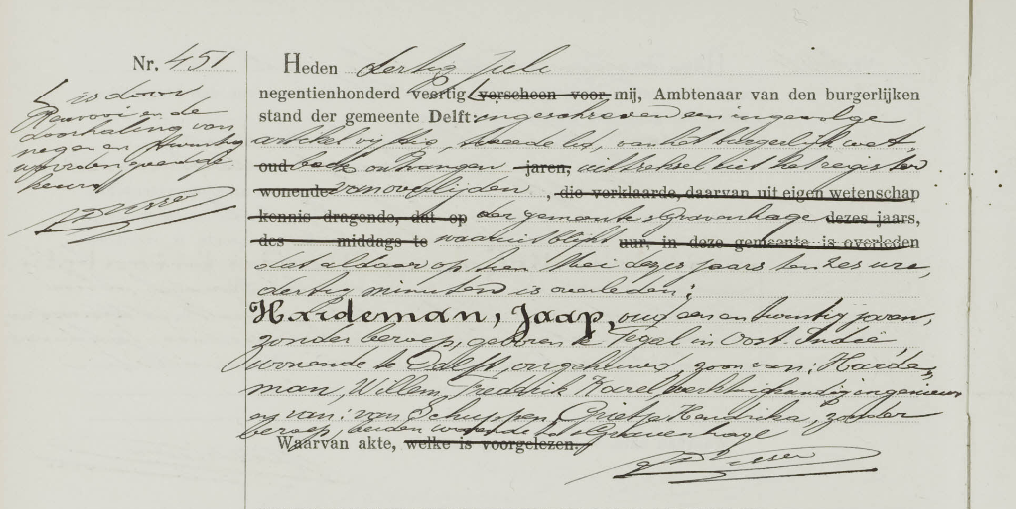 Nr. 451
Heden dertig Juli
negentienhonderd veertig verscheen voor mij, Ambtenaar van den burgerlijken
stand der gemeente Delft: ingeschreven een ingevolge
artikel vijftig, tweede lid, van het burgerlijk wet-
oud boek ontvangen jaren, uittreksel uit het register
wonende van overlijden , die verklaarde, daarvan uit eigen wetenschap
kennis dragende, dat op der gemeente 's Gravenhage dezes jaars,
des middags te waaruit blijkt uur, in deze gemeente is overleden
dat aldaar op tien Mei dezes jaars ten zes ure,
dertig minuten is overleden:
Hardeman, Jaap, oud een en twintig jaren,
zonder beroep, geboren te Tegal in Oost-Indië
wonende te Delft, ongehuwd, zoon van: Harde-
man, Willem Fredrik Karel, werktuigkundig ingenieur
en van: van Schuppen, Grietje Hendrika, zonder
beroep, beiden wonende te 's Gravenhage
Waarvan akte, welke is voorgelezen.
Visser
is door
en de
doorhaling van
negen en twintig
woorden, goedge-
keurd
Visser